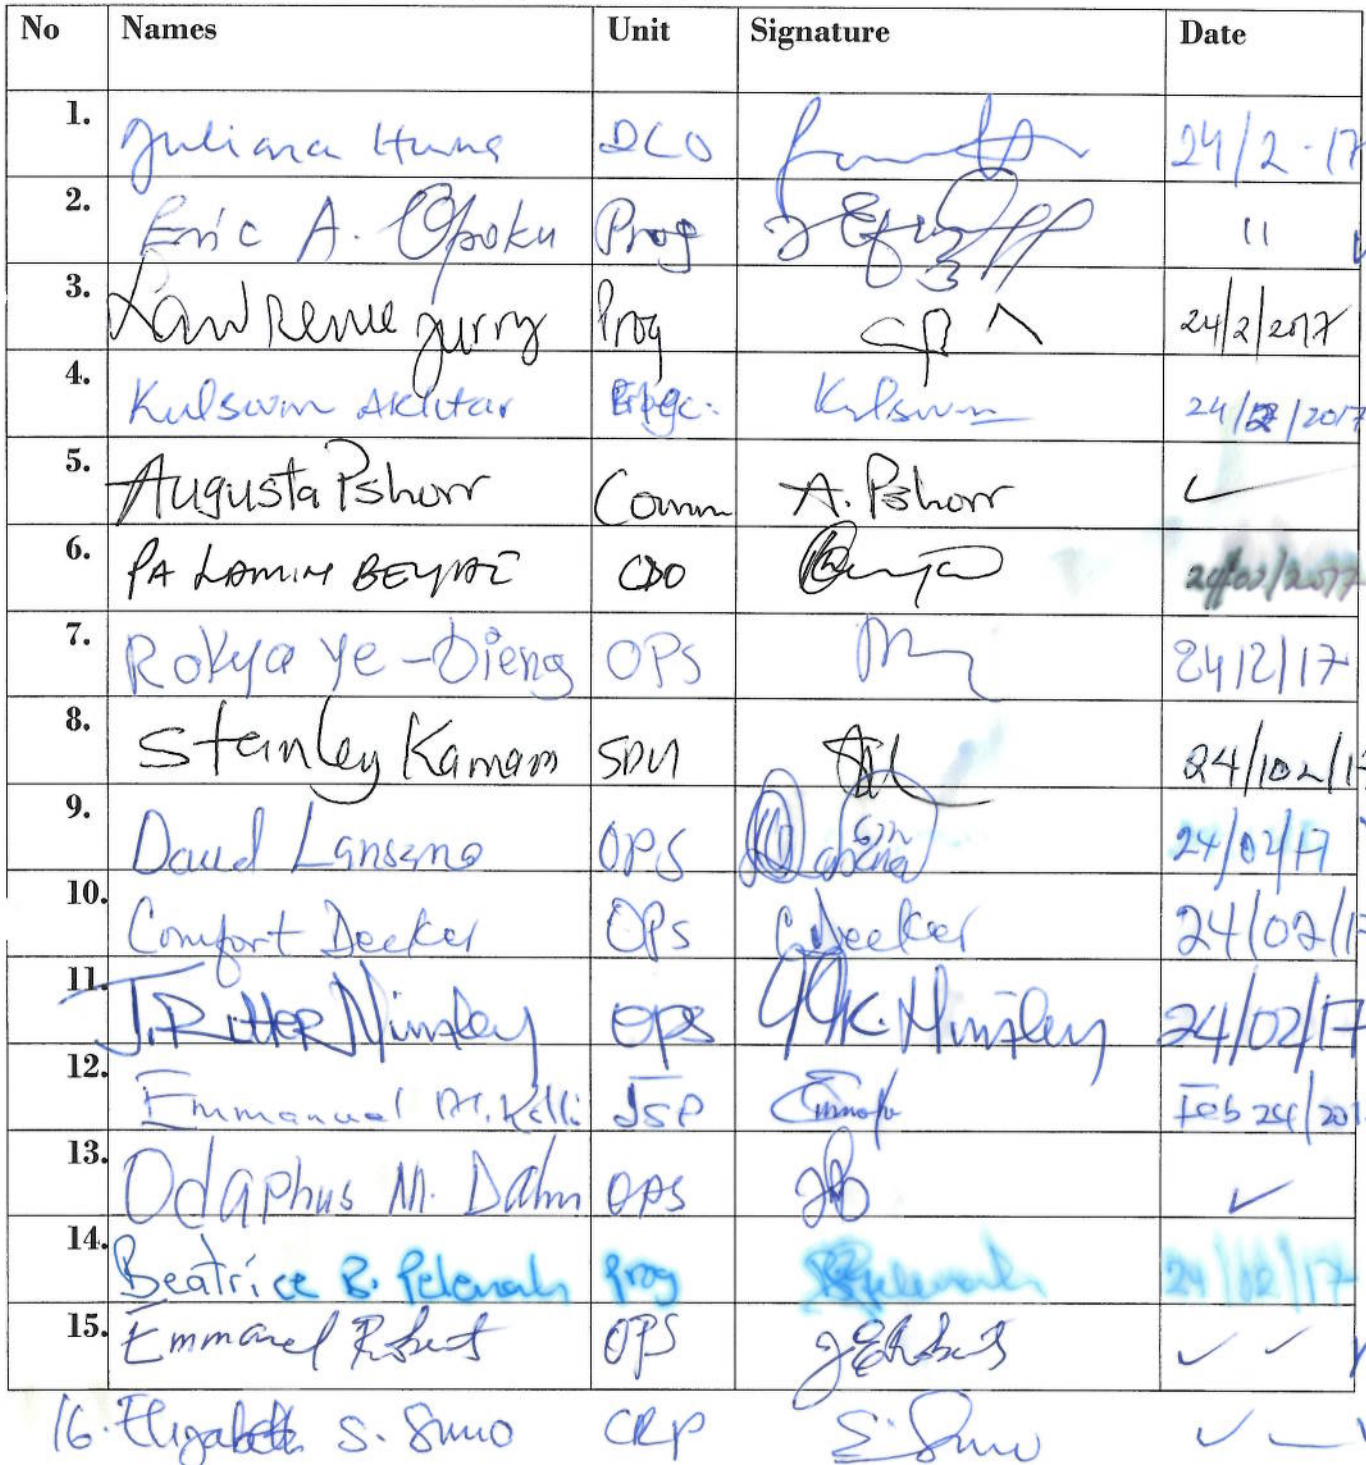 No Names Unit Signature Date
1. Juliana Huna DCO 24/2-17
2. Eric A. Opoku Prog "
3. Lawrence Prog 24/2/2017
4. Kulsum Akhtar Kulsum 24/2/2017
5. Augusta Pshorr Comm A. Pshorr ✓
6. PA LAMIN BEYAI CDO 24/02/2017
7. Rokya Ye-Dieng OPS 24/2/17
8. Stanley Kamara SDU 24/02/17
9. David Lansana OPS 24/02/17
10. Comfort Deeker OPS C. Deeker 24/02/17
11. J. Ritter Nimley OPS 24/02/17
12. Emmanuel M. JSP Feb 24/201
13. Odaphus M. Dahn OPS ✓
14. Beatrice B. Pelenah Prog 24/02/17
15. Emmanel Robert OPS ✓ ✓
16. Elizabeth S. CRP ✓